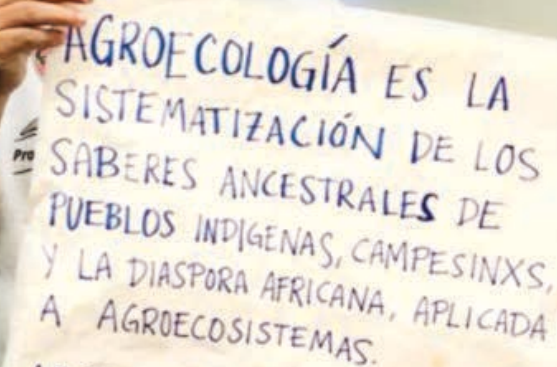 AGROECOLOGÍA ES LA
SISTEMATIZACIÓN DE LOS
SABERES ANCESTRALES DE
PUEBLOS INDIGENAS, CAMPESINXS,
Y LA DIASPORA AFRICANA, APLICADA
A AGROECOSISTEMAS.
Pro